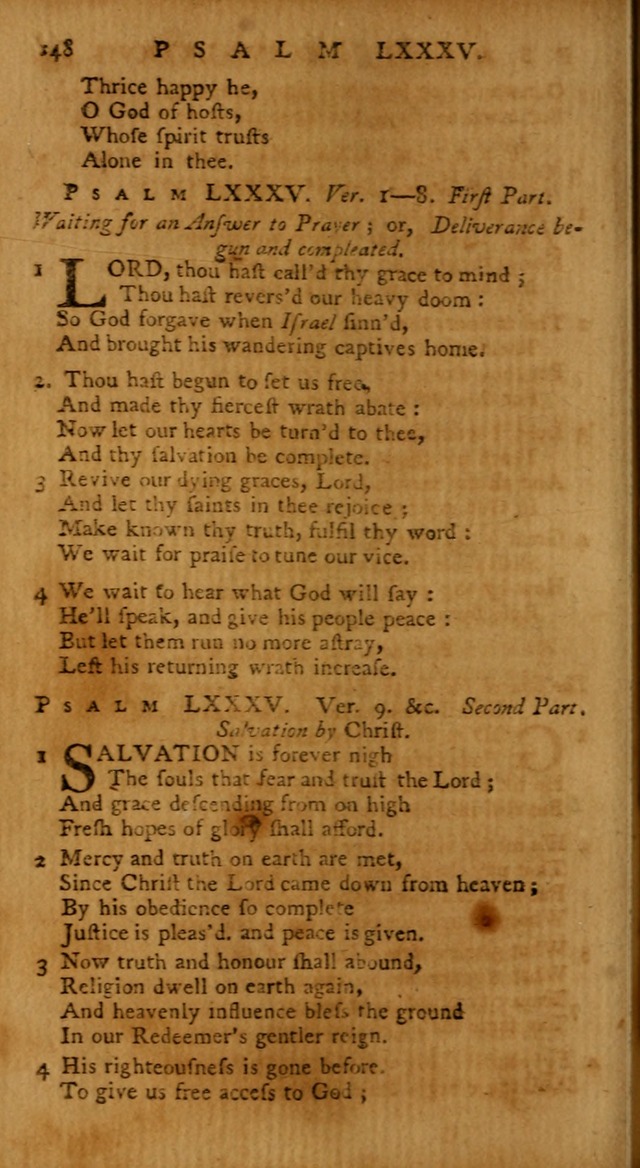 148 PSALM LXXXV.
Thrice happy he,
O God of hoſts,
Whoſe ſpirit truſts
Alone in thee.
PSALM LXXXV. Ver. 1—8. Firſt Part.
Waiting for an Anſwer to Prayer; or, Deliverance be-
gun and compleated.
1 LORD, thou haſt call'd thy grace to mind;
Thou haſt revers'd our heavy doom:
So God forgave when Iſrael ſinn'd,
And brought his wandering captives home.
2. Thou haſt begun to ſet us free,
And made thy fierceſt wrath abate:
Now let our hearts be turn'd to thee,
And thy ſalvation be complete.
3 Revive our dying graces, Lord,
And let thy ſaints in thee rejoice;
Make known thy truth, fulfil thy word:
We wait for praiſe to tune our vice.
4 We wait to hear what God will ſay:
He'll ſpeak, and give his people peace:
But let them run no more aſtray,
Leſt his returning wrath increaſe.
PSALM LXXXV. Ver. 9. &c. Second Part.
Salvation by Chriſt.
1 SALVATION is forever nigh
The ſouls that fear and truſt the Lord;
And grace deſcending from on high
Freſh hopes of glory ſhall afford.
2 Mercy and truth on earth are met,
Since Chriſt the Lord came down from heaven;
By his obedience ſo complete
Juſtice is pleas'd. and peace is given.
3 Now truth and honour ſhall abound,
Religion dwell on earth again,
And heavenly influence bleſs the ground
In our Redeemer's gentler reign.
4 His righteouſneſs is gone before.
To give us free acceſs to God;